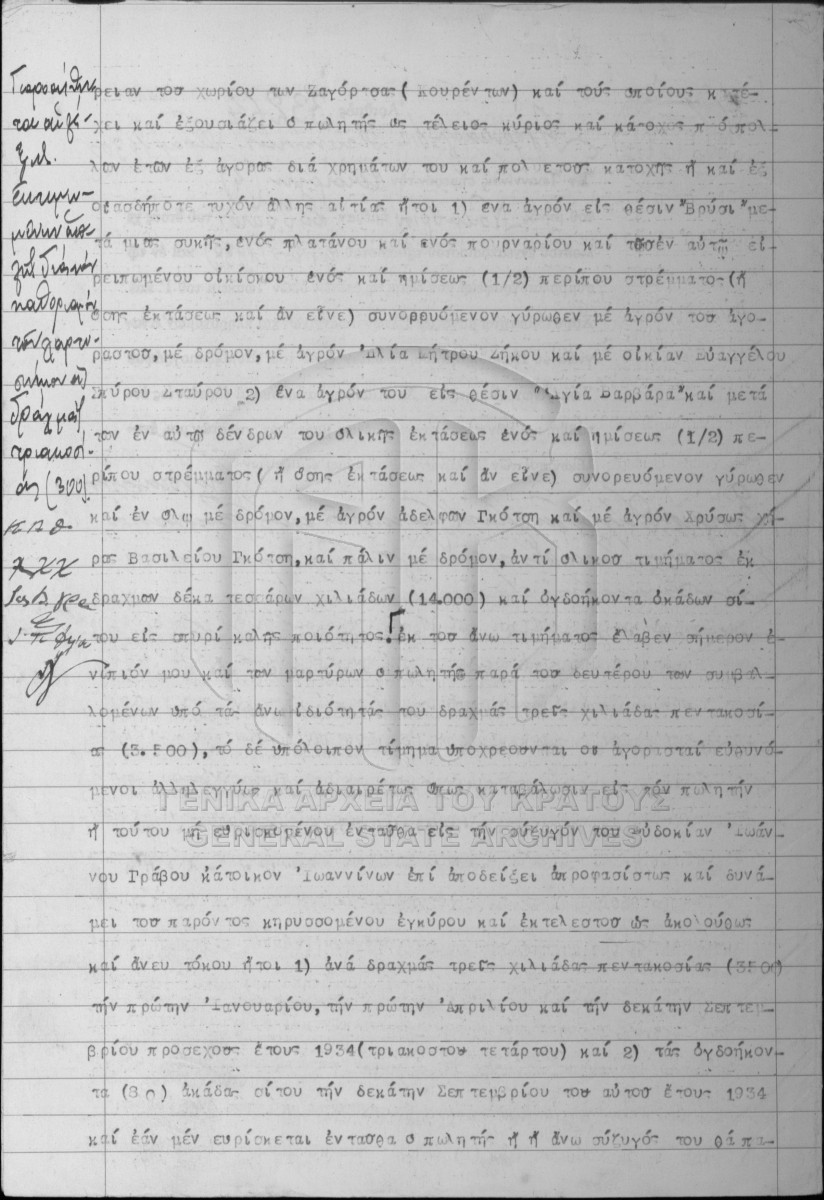 ρειαν τοσ χωρίου των Ζαγόρτσας( Κουρέντων) καί τούς οποίους κατέ-
χει καί ἐξουσιάζει ο πωλητής ως τέλειος κύριος καί κάτοχος πρό πολ-
λων ἐτων ἐξ ἀγορας διά χρημάτων του καί πολυετοσς κατοχής ἤ καί ἐξ
οιασδήποτε τυχόν άλλης αιτίας ἤτοι 1) ενα ἀγρόν είς θέσιν "Βρύσι" με-
τά μιας συκής, ενός πλατάνου καί ενός πουρναρίου καί τοσέν αὐτω εί-
ρειπωμένου οικίσκου ενός καί ημίσεως (1/2) περίπου στρέμματος (ή
όσης ἐκτάσεως καί ἄν εἶνε) συνορρυόμενον γύρωθεν μέ ἀγρόν τοσ ἀγο-
ραστοσ, μέ δρόμον, μέ ἀγρόν Ηλία Μήτρου Ζήκου καί μέ οικίαν Εὐαγγέλου
Σπύρου Σταύρου 2) ενα ἀγρόν του είς θέσιν "Αγία Βαρβάρα" καί μετά
των ἐν αὐτω δένδρων του ολικής ἐκτάσεως ενός καί ημίσεως (1/2) πε-
ρίπου στρέμματος( ή όσης ἐκτάσεως καί ἄν εἶνε) συνορευόμενον γύρωθεν
καί ἐν ολω μέ δρόμον, μέ ἀγρόν ἀδελφων Γκότση καί μέ ἀγρόν Χρύσως χή-
ρας Βασιλείου Γκότση, καί πάλιν μέ δρόμον, ἀντί ολικοσ τιμήματος ἐκ
δραχμων δέκα τεσσάρων χιλιάδων (14.000) καί ογδοήκοντα οκάδων σί-
του είς σπυρί καλης ποιότητος. Γ ἐκ τοσ ἄνω τιμήματος ἔλαβεν σήμερον ἐ-
νώπιόν μου καί των μαρτύρων ο πωλητής παρά τοσ δευτέρου των συμβαλ-
λομένων υπό τάς ἄνω ιδιότητάς του δραχμάς τρεσς χιλιάδας πεντακοσί-
ας (3.500), τό δέ υπόλοιπον τίμημα υποχρεοσνται οι ἀγορασταί εὐθυνό-
μενοι ἀλληλεγγύως καί ἀδιαιρέτως όπως καταβάλωσιν είς τόν πωλητήν
ή τούτου μή ευρισκομένου ἐντασθα είς τήν σύζυγόν του Εὐδοκίαν Ἰωάν-
νου Γράβου κάτοικον Ἰωαννίνων ἐπί ἀποδείξει ἀπροφασίστως καί δυνά-
μει τοσ παρόντος κηρυσσομένου ἐγκύρου καί ἐκτελεστοσ ὡς ἀκολούθως
καί ἄνευ τόκου ἤτοι 1) ἀνά δραχμάς τρεσς χιλιάδας πεντακοσίας (3500)
τήν πρώτην Ἰανουαρίου, τήν πρώτην Ἀπριλίου καί τήν δεκάτην Σεπτεμ-
βρίου προσεχοσς ἔτους 1934(τριακοστοσ τετάρτου) καί 2) τάς ογδοήκον-
τα (80) οκάδας σίτου τήν δεκάτην Σεπτεμβρίου τοσ αὐτοσ ἔτους 1934
καί ἐάν μέν ευρίσκεται ἐντασθα ο πωλητής ή ή ἄνω σύζυγός του θά πα-
τριακοσί-
ας (300).
ΓΕΝΙΚΑ ΑΡΧΕΙΑ ΤΟΥ ΚΡΑΤΟΥΣ
GENERAL STATE ARCHIVES